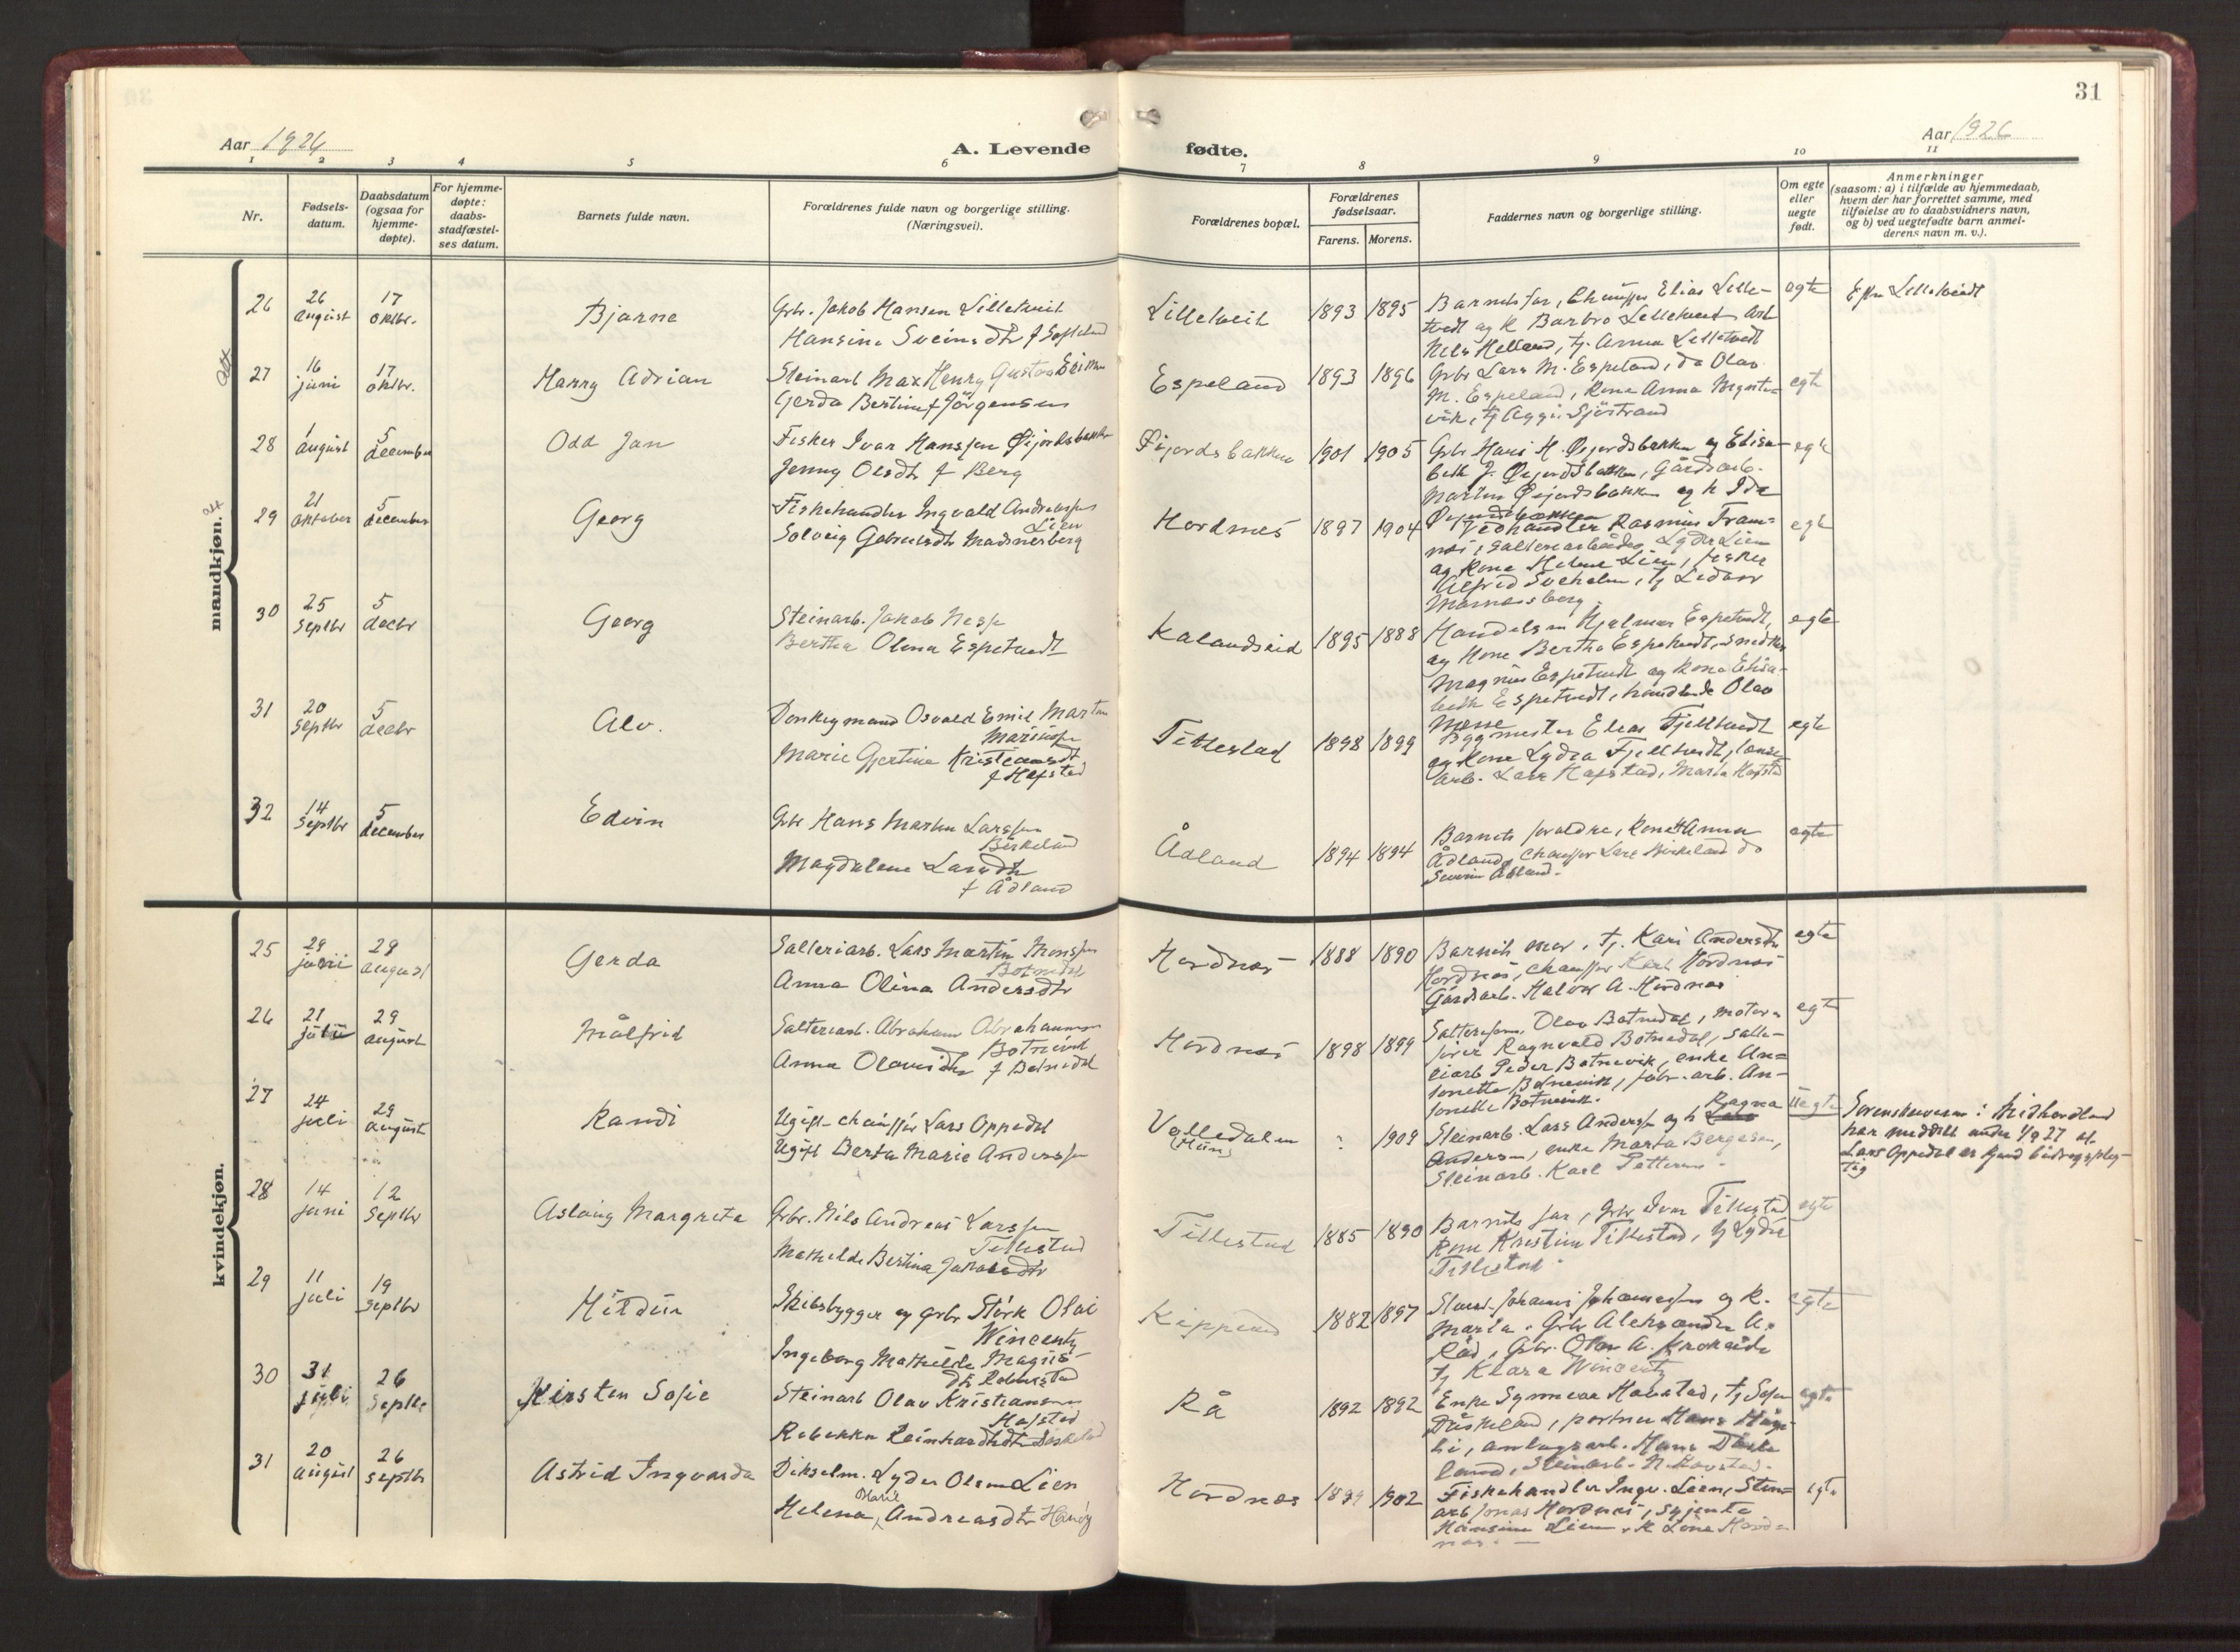 31
Aar 1926
A. Levende fødte.
Aar 1926
1 2 3 4 5 6 7 8 9 10 11
Nr.
Fødsels-
datum.
Daabsdatum
(ogsaa for
hjemme-
døpte).
For hjemme-
døpte:
daabs-
stadfæstel-
ses datum.
Barnets fulde navn.
Forældrenes fulde navn og borgerlige stilling.
(Næringsvei).
Forældrenes bopæl.
Forældrenes
fødselsaar.
Farens. Morens.
Faddernes navn og borgerlige stilling.
Om egte
eller
uegte
født.
Anmerkninger
(saasom: a) i tilfælde av hjemmedaab,
hvem der har forrettet samme, med
tilføielse av to daabsvidners navn,
og b) ved uegtefødte barn anmel-
derens navn m. v.).
mandkjøn.
26
26 august
17 oktbr.
Bjarne
Grbr. Jakob Hansen Lilletveit
Hansine Sveinsdtr f
Lilletveit
1893 1895
Barnets far, Elias Lille-
tvedt og k Barbro Lilletvedt, arb
Nils Helland, tj. Anna Lilletvedt
egte
27
16 juni
17 oktbr.
Harry Adrian
Steinarb Max Henry Gustav
Gerda Bertine f Jörgensen
Espeland
1893 1896
Grbr Lars M. Espeland, do Olav
M. Espeland, kone Anna
vik, tj Sjöstrand
egte
28
1 august
5 december
Odd Jan
Fisker Ivar Hanssen Øijordsbakken
Jenny Olsdtr f Berg
Øijordsbakken
1901 1905
Grbr Hans H. Øijordsbakken og Elisa-
beth J. Øijordsbakken, Gårdsarb.
Martin Øijordsbakken og k Ida
Øijordsbakken
egte
29
21 oktober
5 december
Georg
Fiskehandler Ingvald Andreassen
Lien
Solveig
Hordnes
1897 1904
Vedhandler Rasmus Tram-
nes, Lyder Lien
og kone Helene Lien, fisker
Alfred
egte
30
25 septbr
5 decbr
Georg
Steinarb. Jakob Nesse
Bertha Olena Espetvedt
Kalandseid
1895 1888
Handelsm Hjalmar Espetvedt,
og kone Bertha Espetvedt,
Magnus Espetvedt og kone Elisa-
beth Espetvedt, Olav
Nesse
egte
31
20 septbr
5 decbr
Alv.
Donkeymand Osvald Emil Martin
Marie Gjertine
f Hafstad
Titlestad
1898 1899
Byggmester Elias Fjelltvedt
og kone Lydia Fjelltvedt,
arb. Lars Hafstad, Marta Hafstad
egte
32
14 septbr
5 december
Edvin
Grbr Hans Martin Larssen
Birkeland
Magdalene Larsdtr
f Ådland
Ådland
1894 1894
Barnets foreldre, kone Anna
Ådland, chauffør Lars Birkeland do
Severin Ådland.
egte
kvindekjøn.
25
29
29 august
Gerda
Salteriarb. Lars Martin Monssen
Botnedal
Anna Olina Andersdtr
Hordnes
1888 1890
Barnets mor, tj. Kari Andersdtr
Hordnes, chauffør Karl Hordnes
Gårdsarb. Halvor A. Hordnes
egte
26
21
29 august
Målfrid
Salteriarb. Abraham Abrahamsen
Botnevik
Anna Olavsdtr f Botnedal
Hordnes
1898 1899
Olav Botnedal, motor-
fører Ragnvald Botnedal, salte-
riarb Peder Botnevik, enke An-
tonette Botnevik, fabr. arb. An-
tonette Botnevik.
egte
27
24 juli
29 august
Randi
Ugift chauffør Lars Oppedal
Ugift Berta Marie Anderssen
Valledalen
?
1909
Steinarb. Lars Anderssen og k Ragna
Andersen, enke Marta Bergesen,
Steinarb. Karl Pettersen.
uegte
Sorenskriveren i Midhordland
har meddelt under 1/9 27 at
Lars Oppedal er kjend bidragspleg-
tig
28
14 juni
12 septbr
Aslaug Margreta
Grbr. Nils Andreas Larssen
Titlestad
Mathilde Bertina Jakobsdtr
Titlestad
1885 1890
Barnets far, Grbr Ivar Titlestad
kone Kristine Titlestad, tj Lydia
Titlestad.
egte
29
11 juli
19 septbr
Hildur
Skibsbygger og grbr Størk Olai
Wincentz
Ingeborg Mathilde Magnus-
dtr
1882 1897
Johannes Johannessen og k.
Marta. Grbr Aleksander A.
Råd, Grbr. Olav A. Krokeide
tj Klara Wincentz
egte
30
31 juli
26 septbr
Kirsten Sofie
Steinarb Olav Kristiansen
Hafstad
Rebekka Reinhardtsdtr
Rå
1892 1892
Enke Synneva Havstad, tj
portner Hans
anlegsarb. Hans
land, Steinarb. N. Havstad.
egte
31
20 august
26 septbr
Astrid Ingvarda
Dikselm. Lyder Olsen Lien
Marie
Helena Andreasdtr
Hordnes
1902
Fiskehandler Ingv. Lien, Sten-
arb Jonas Hordnes, syjente
Hansine Lien, k Lina Hord-
nes.
egte